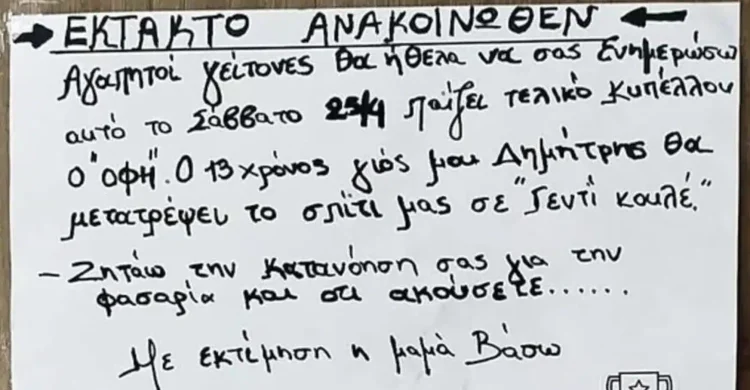 ΕΚΤΑΚΤΟ ΑΝΑΚΟΙΝΩΘΕΝ
Αγαπητοί γείτονες θα ήθελα να σας ενημερώσω
αυτό το Σάββατο 25/4 παίζει τελικό Κυπέλλου
ο "ΟΦΗ". Ο 13χρόνος γιός μου Δημήτρης θα
μετατρέψει το σπίτι μας σε "Γεντί κουλέ."
- Ζητάω την κατανόηση σας για την
φασαρία και οτι ακούσετε......
Με εκτίμηση η μαμά Βάσω